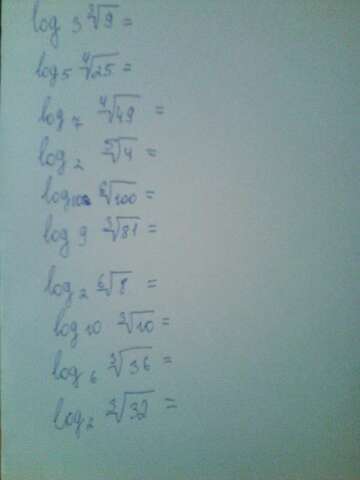 log₃ ∛9 =
log₅ ∜25 =
log₇ ∜49 =
log₂ ⁵√4 =
log₁₀ ⁶√100 =
log₉ ∛81 =
log₂ ⁶√8 =
log₁₀ ∛10 =
log₆ ∛36 =
log₂ ∛32 =